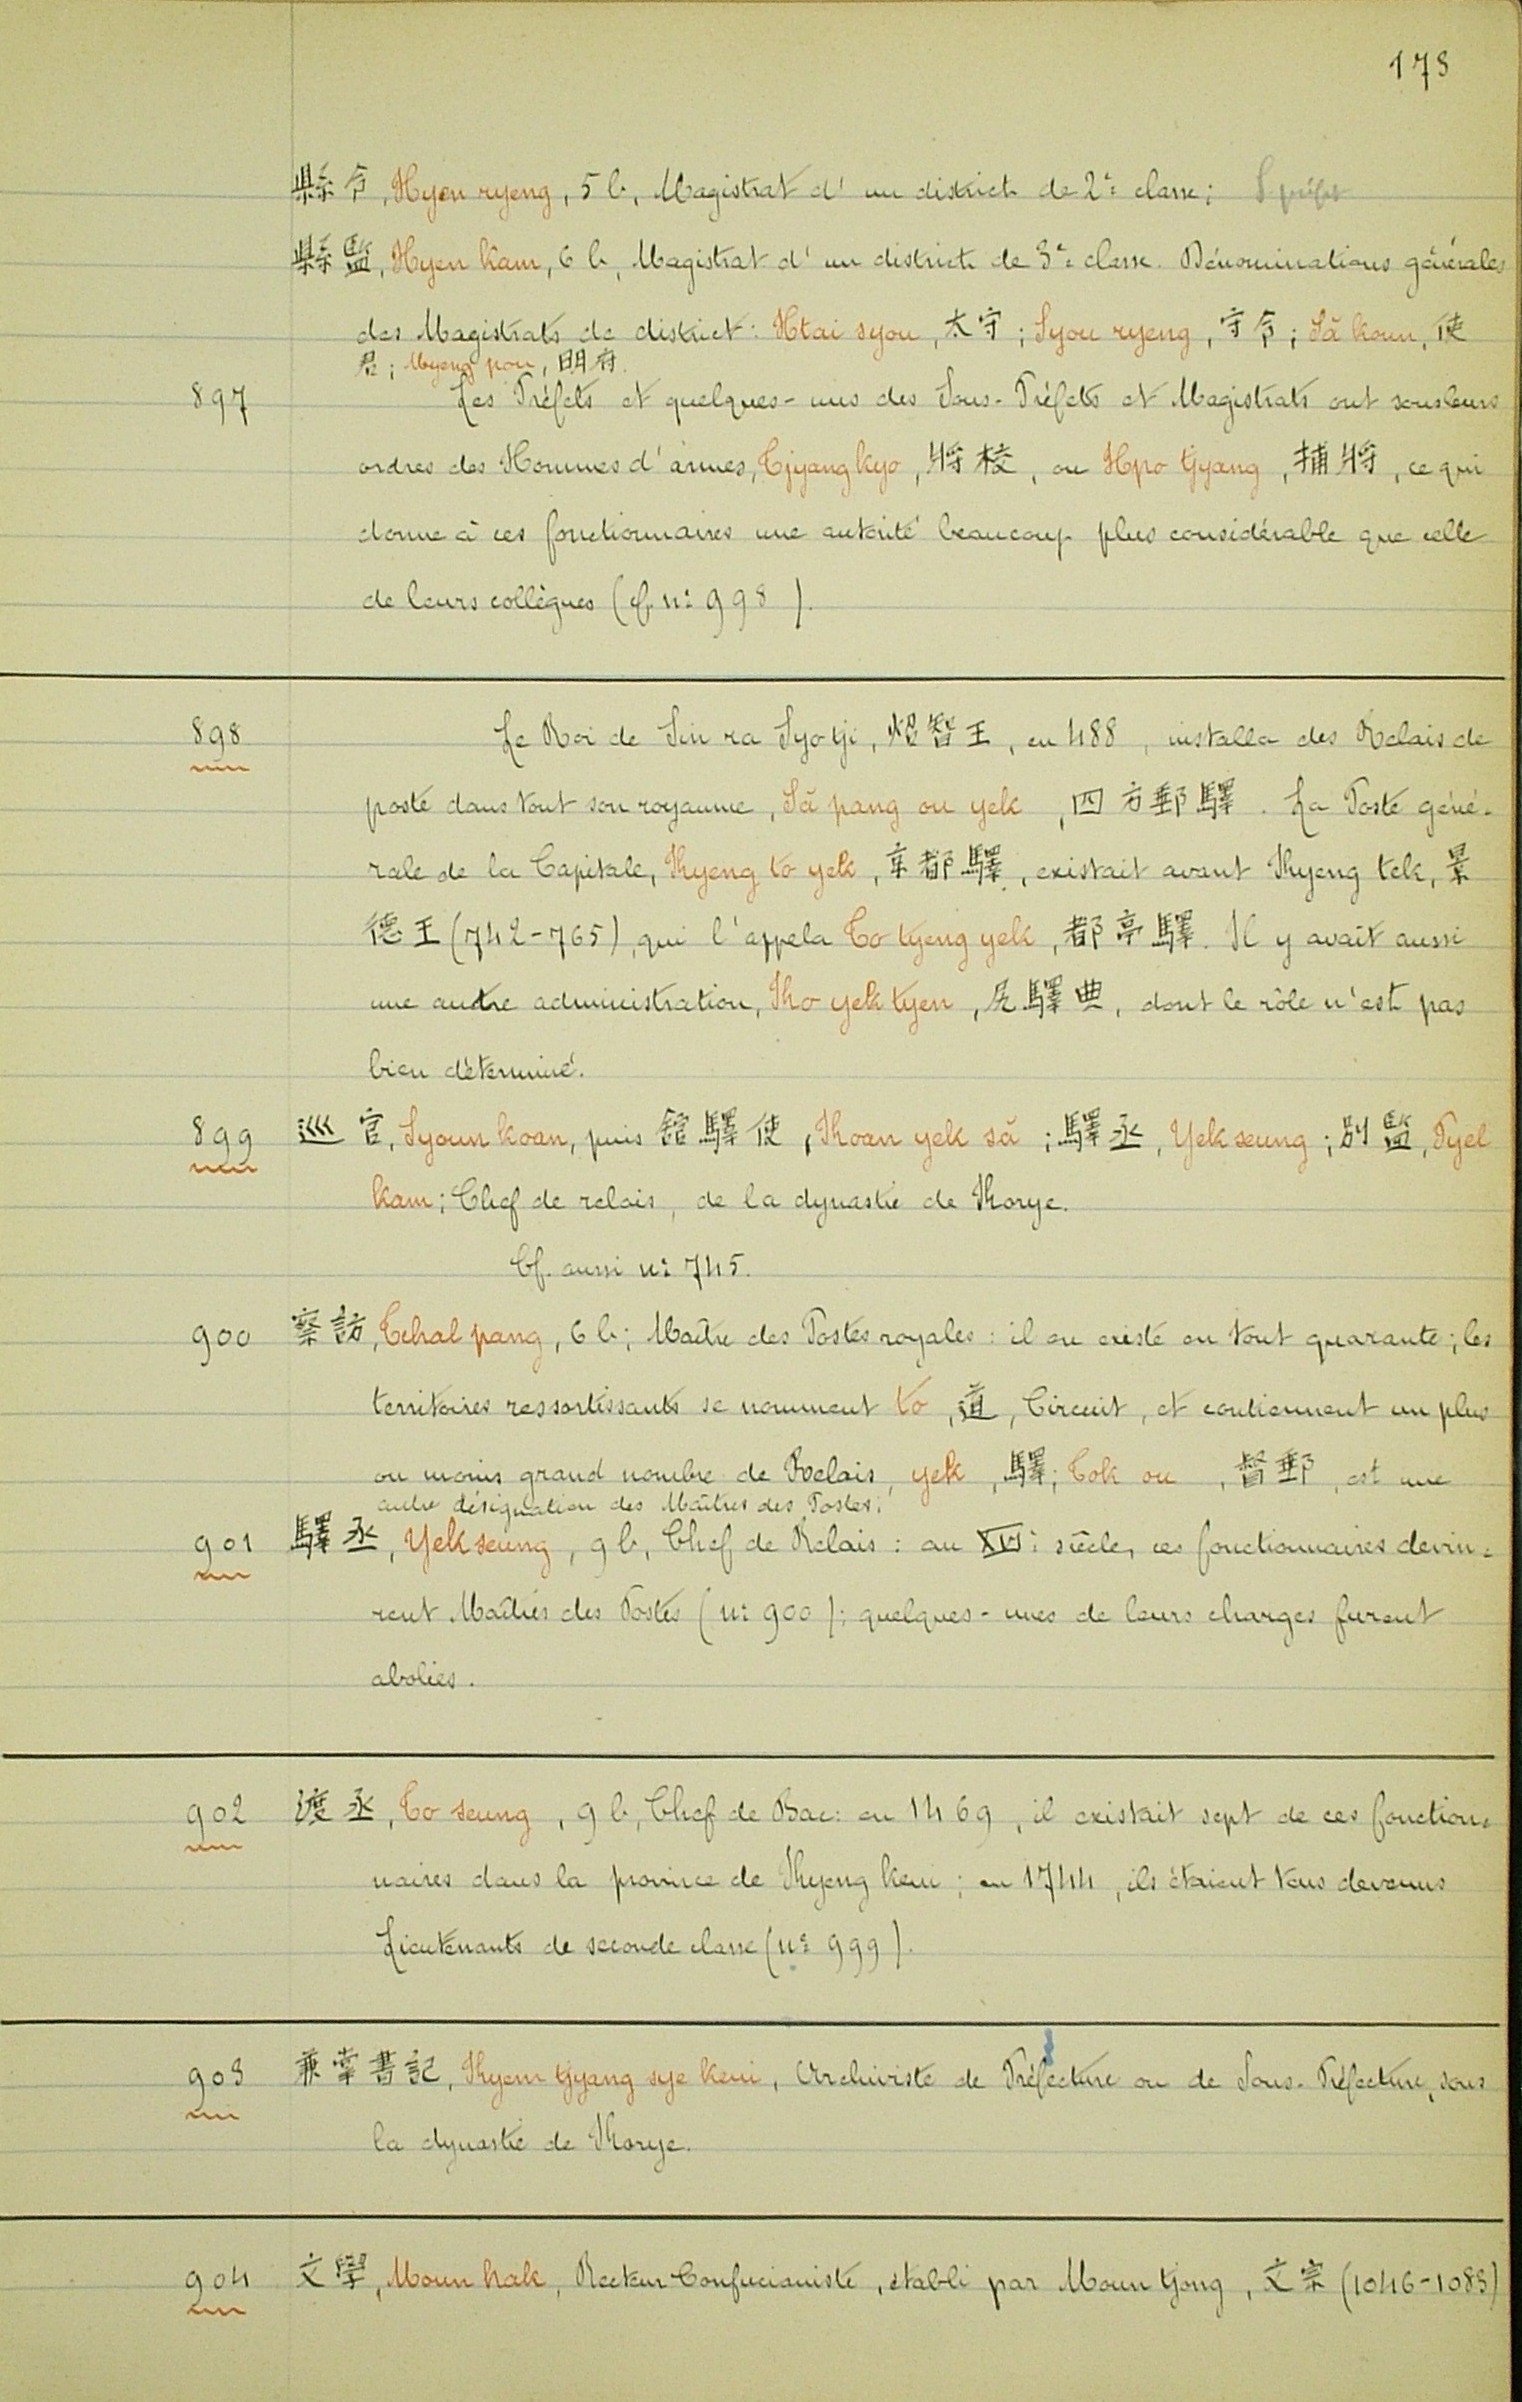 173
縣令, Hyen ryeng, 5 b, Magistrat d'un district de 2e classe; S préfet
縣監, Hyen kam, 6 b, Magistrat d'un district de 3e classe. Dénominations générales
des Magistrats de district: Htai syou, 太守; Syou ryeng, 守令; Să koun, 使
君; Myeng pou, 明府.
897 Les Préfets et quelques-uns des Sous-Préfets et Magistrats ont sous leurs
ordres des Hommes d'armes, Tjyang kyo, 將校, ou Hpo tjyang, 捕將, ce qui
donne à ces fonctionnaires une autorité beaucoup plus considérable que celle
de leurs collègues (cf. no 998).
898 Le Roi de Sin ra Syo tji, 炤智王, en 488, installa des Relais de
poste dans tout son royaume, Să pang ou yek, 四方郵驛. La Poste géné-
rale de la Capitale, Kyeng to yek, 京都驛, existait avant Kyeng tek, 景
德王 (742-765), qui l'appela To tyeng yek, 都亭驛. Il y avait aussi
une autre administration, Ko yek tyen, 尻驛典, dont le rôle n'est pas
bien déterminé.
899 巡官, Syoun koan, puis 舘驛使, Koan yek să; 驛丞, Yek seung; 別監, Pyel
kam; Chef de relais, de la dynastie de Korye.
Cf. aussi no 745.
900 察訪, Tchal pang, 6 b; Maître des Postes royales: il en existe en tout quarante; les
territoires ressortissants se nomment to, 道, Circuit, et contiennent un plus
ou moins grand nombre de Relais, yek, 驛; Tok ou, 督郵, est une
autre désignation des Maîtres des Postes.
901 驛丞, Yek seung, 9 b, Chef de Relais: au XVIe siècle, ces fonctionnaires devin-
rent Maîtres des Postes (no 900); quelques-unes de leurs charges furent
abolies.
902 渡丞, To seung, 9 b, Chef de Bac: en 1469, il existait sept de ces fonction-
naires dans la province de Kyeng keui; en 1744, ils étaient tous devenus
Lieutenants de seconde classe (no 999).
903 兼掌書記, Kyem tjyang sye keui, Archiviste de Préfecture ou de Sous-Préfecture, sous
la dynastie de Korye.
904 文學, Moun hak, Recteur Confucianiste, établi par Moun tjong, 文宗 (1046-1083)